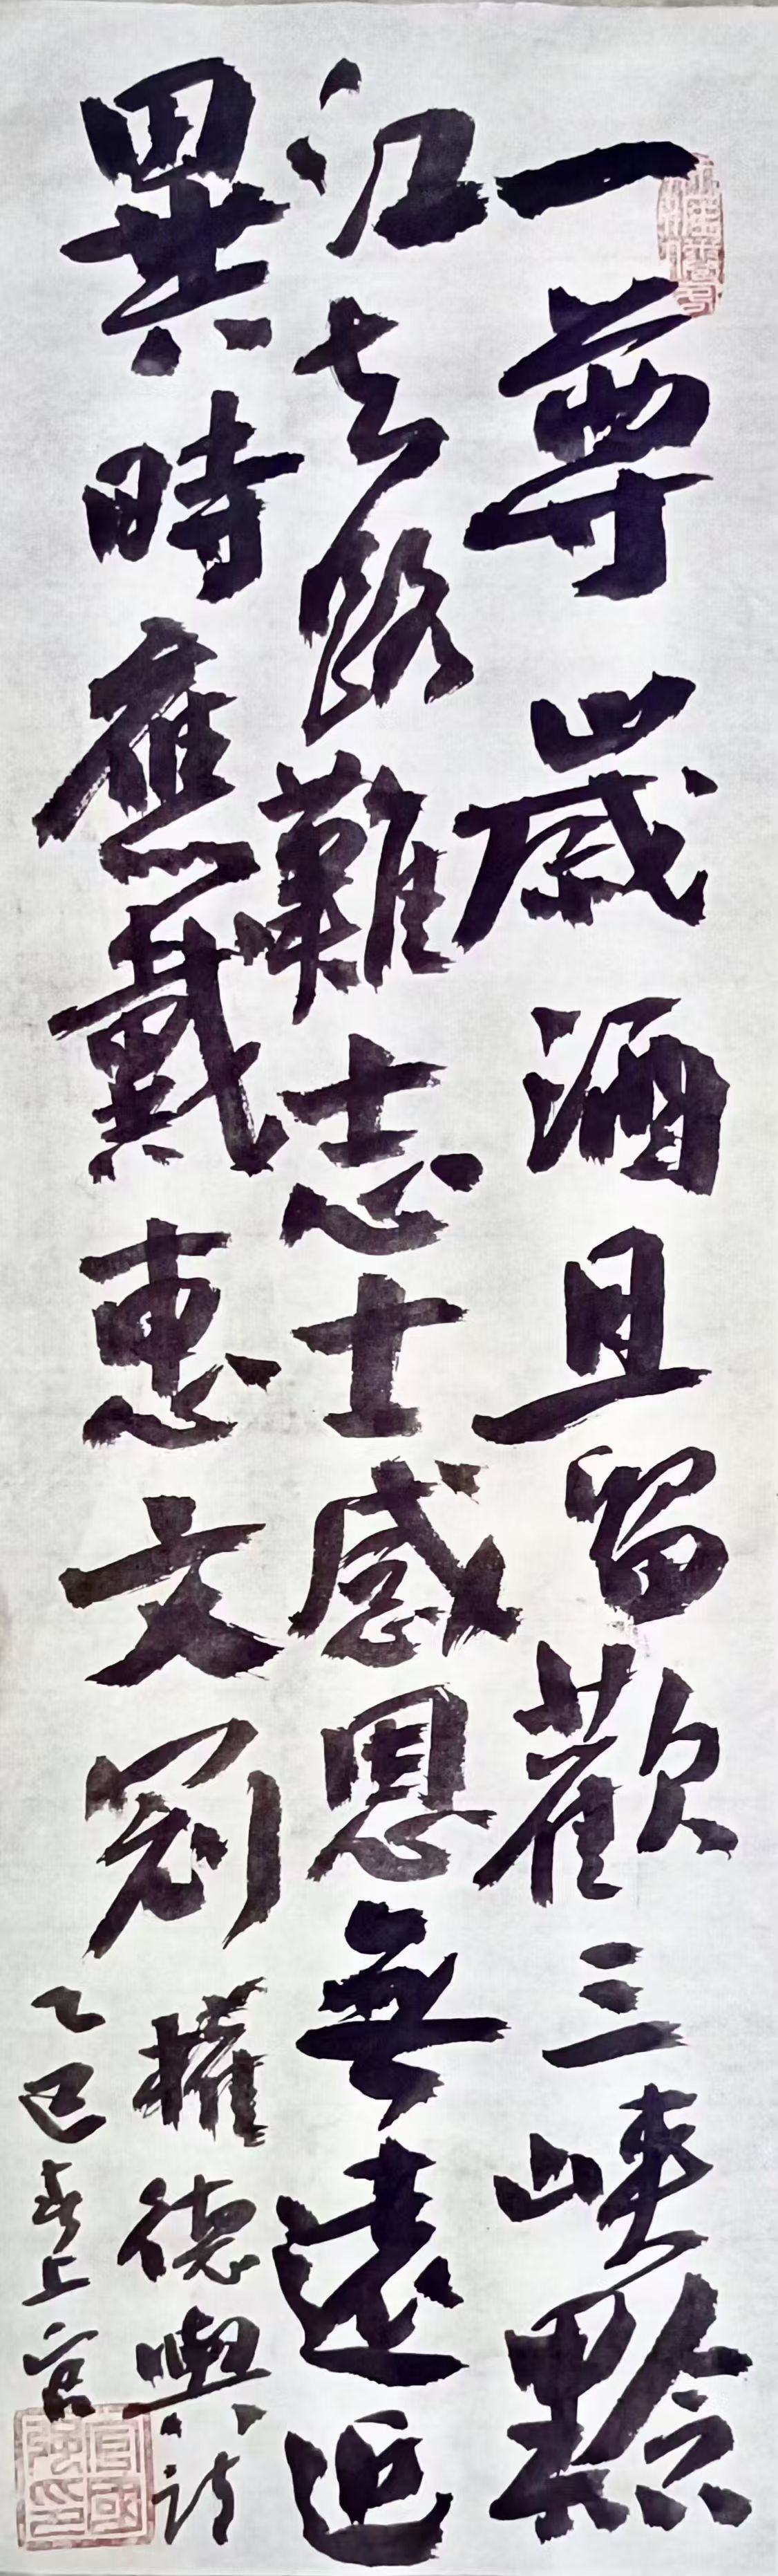 一尊歲酒且留歡三峽黔
江去路難志士感恩無遠近
異時應戴惠文冠權德輿詩
乙巳春上官